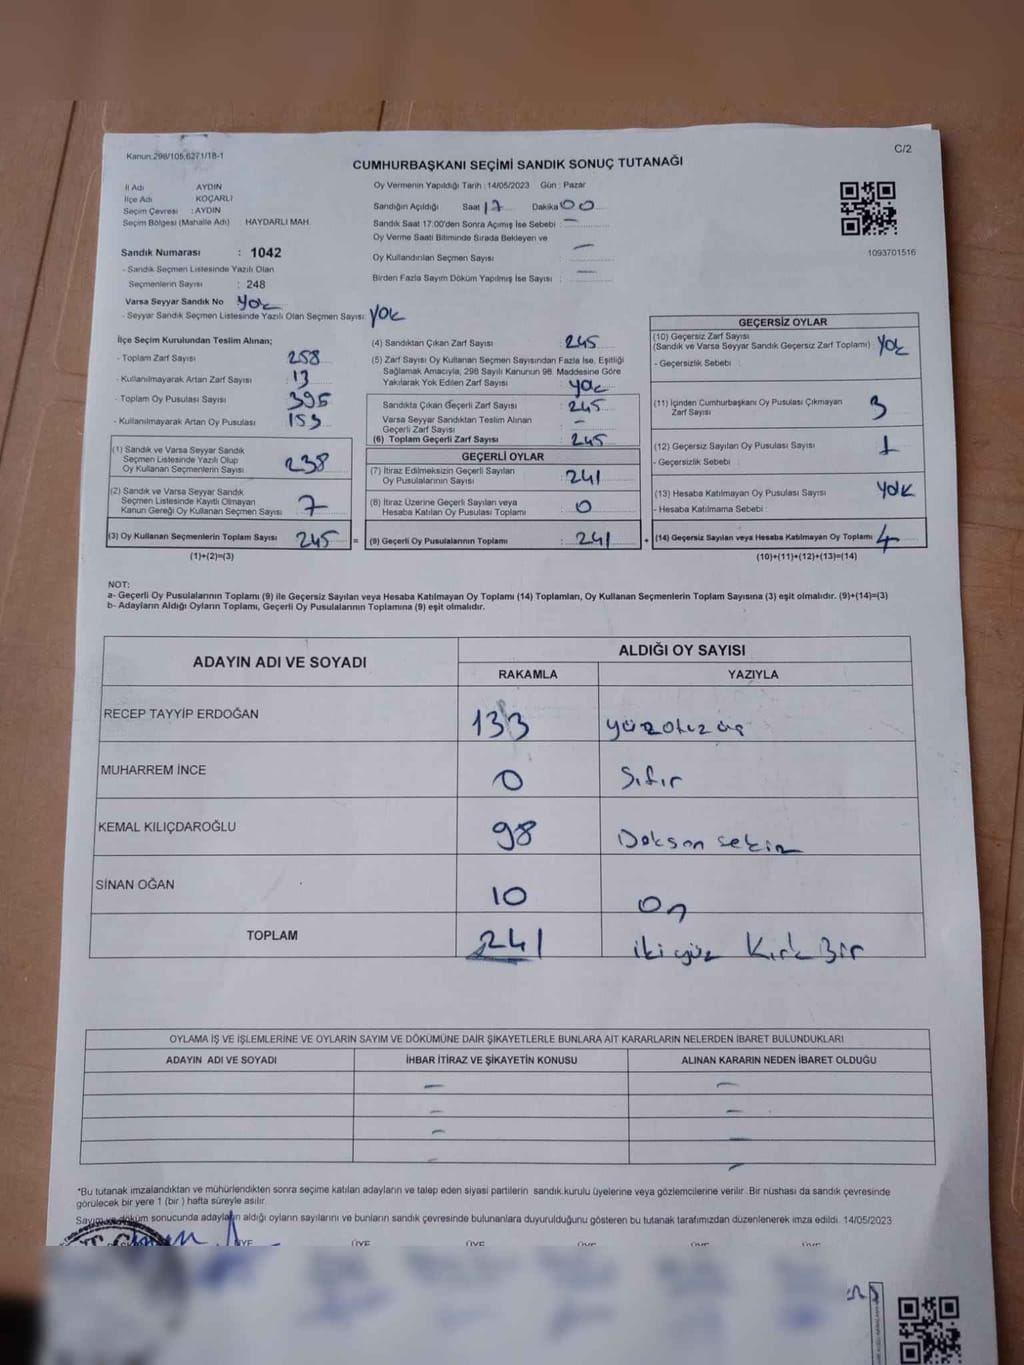 Kanun:298/105,6271/18-1
C/2
CUMHURBAŞKANI SEÇİMİ SANDIK SONUÇ TUTANAĞI
İl Adı AYDIN
İlçe Adı KOÇARLI
Seçim Çevresi : AYDIN
Seçim Bölgesi (Mahalle Adı) : HAYDARLI MAH.
Sandık Numarası : 1042
- Sandık Seçmen Listesinde Yazılı Olan
Seçmenlerin Sayısı : 248
Varsa Seyyar Sandık No Yok
- Seyyar Sandık Seçmen Listesinde Yazılı Olan Seçmen Sayısı: Yok
Oy Vermenin Yapıldığı Tarih : 14/05/2023 Gün : Pazar
Sandığın Açıldığı Saat 17 Dakika 00
Sandık Saat 17:00'den Sonra Açımış İse Sebebi : —
Oy Verme Saati Bitiminde Sırada Bekleyen ve
Oy Kullandırılan Seçmen Sayısı : —
Birden Fazla Sayım Döküm Yapılmış İse Sayısı : —
1093701516
İlçe Seçim Kurulundan Teslim Alınan;
- Toplam Zarf Sayısı : 258
- Kullanılmayarak Artan Zarf Sayısı : 13
- Toplam Oy Pusulası Sayısı : 395
- Kullanılmayarak Artan Oy Pusulası : 153
(1) Sandık ve Varsa Seyyar Sandık
Seçmen Listesinde Yazılı Olup
Oy Kullanan Seçmenlerin Sayısı : 238
(2) Sandık ve Varsa Seyyar Sandık
Seçmen Listesinde Kayıtlı Olmayan
Kanun Gereği Oy Kullanan Seçmen Sayısı : 7
(3) Oy Kullanan Seçmenlerin Toplam Sayısı : 245 =
(1)+(2)=(3)
(4) Sandıktan Çıkan Zarf Sayısı : 245
(5) Zarf Sayısı Oy Kullanan Seçmen Sayısından Fazla İse, Eşitliği
Sağlamak Amacıyla, 298 Sayılı Kanunun 98. Maddesine Göre
Yakılarak Yok Edilen Zarf Sayısı : yok
Sandıkta Çıkan Geçerli Zarf Sayısı : 245
Varsa Seyyar Sandıktan Teslim Alınan
Geçerli Zarf Sayısı : —
(6) Toplam Geçerli Zarf Sayısı : 245
GEÇERLİ OYLAR
(7) İtiraz Edilmeksizin Geçerli Sayılan
Oy Pusulalarının Sayısı : 241
(8) İtiraz Üzerine Geçerli Sayılan veya
Hesaba Katılan Oy Pusulası Toplamı : 0
(9) Geçerli Oy Pusulalarının Toplamı : 241 +
GEÇERSİZ OYLAR
(10) Geçersiz Zarf Sayısı
(Sandık ve Varsa Seyyar Sandık Geçersiz Zarf Toplamı) Yok
- Geçersizlik Sebebi :
(11) İçinden Cumhurbaşkanı Oy Pusulası Çıkmayan
Zarf Sayısı : 3
(12) Geçersiz Sayılan Oy Pusulası Sayısı : 1
- Geçersizlik Sebebi :
(13) Hesaba Katılmayan Oy Pusulası Sayısı : Yok
- Hesaba Katılmama Sebebi :
(14) Geçersiz Sayılan veya Hesaba Katılmayan Oy Toplamı : 4
(10)+(11)+(12)+(13)=(14)
NOT:
a- Geçerli Oy Pusulalarının Toplamı (9) ile Geçersiz Sayılan veya Hesaba Katılmayan Oy Toplamı (14) Toplamları, Oy Kullanan Seçmenlerin Toplam Sayısına (3) eşit olmalıdır. (9)+(14)=(3)
b- Adayların Aldığı Oyların Toplamı, Geçerli Oy Pusulalarının Toplamına (9) eşit olmalıdır.
ADAYIN ADI VE SOYADI
ALDIĞI OY SAYISI
RAKAMLA YAZIYLA
RECEP TAYYİP ERDOĞAN 133 yüzotuzüç
MUHARREM İNCE 0 Sıfır
KEMAL KILIÇDAROĞLU 98 Doksan sekiz
SİNAN OĞAN 10 On
TOPLAM 241 ikiyüz Kırk Bir
OYLAMA İŞ VE İŞLEMLERİNE VE OYLARIN SAYIM VE DÖKÜMÜNE DAİR ŞİKAYETLERLE BUNLARA AİT KARARLARIN NELERDEN İBARET BULUNDUKLARI
ADAYIN ADI VE SOYADI İHBAR İTİRAZ VE ŞİKAYETİN KONUSU ALINAN KARARIN NEDEN İBARET OLDUĞU
— —
— —
— —
— —
*Bu tutanak imzalandıktan ve mühürlendikten sonra seçime katılan adayların ve talep eden siyasi partilerin sandık kurulu üyelerine veya gözlemcilerine verilir. Bir nüshası da sandık çevresinde
görülecek bir yere 1 (bir ) hafta süreyle asılır.
Sayım ve döküm sonucunda adayların aldığı oyların sayılarını ve bunların sandık çevresinde bulunanlara duyurulduğunu gösteren bu tutanak tarafımızdan düzenlenerek imza edildi. 14/05/2023
ÜYE ÜYE ÜYE ÜYE ÜYE ÜYE